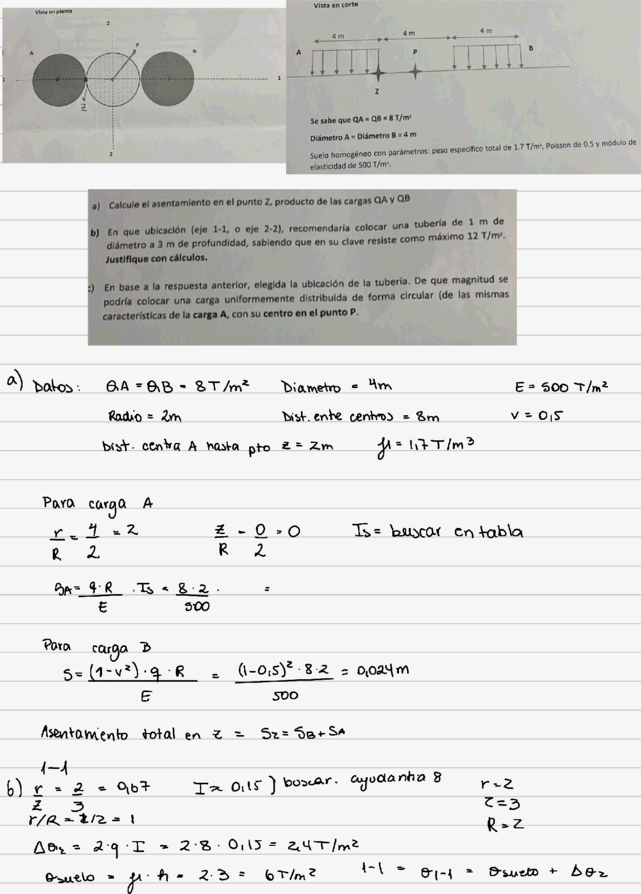 Vista en planta
Vista en corte
2
A
P
B
1
1
Z
2
4 m
4 m
4 m
A
P
B
Z
Se sabe que QA = QB = 8 T/m²
Diámetro A = Diámetro B = 4 m
Suelo homogéneo con parámetros: peso especifico total de 1.7 T/m³, Poisson de 0.5 y módulo de
elasticidad de 500 T/m².
a) Calcule el asentamiento en el punto Z, producto de las cargas QA y QB
b) En que ubicación (eje 1-1, o eje 2-2), recomendaría colocar una tubería de 1 m de
diámetro a 3 m de profundidad, sabiendo que en su clave resiste como máximo 12 T/m².
Justifique con cálculos.
c) En base a la respuesta anterior, elegida la ubicación de la tubería. De que magnitud se
podría colocar una carga uniformemente distribuida de forma circular (de las mismas
características de la carga A, con su centro en el punto P.
a) Datos: QA = QB = 8 T/m² Diametro = 4m E = 500 T/m²
Radio = 2m Dist. ente centros = 8m v = 0,5
Dist. centra A hasta pto z = 2m γ = 1,7 T/m3
Para carga A
r/R = 4/2 = 2 z/R = 0/2 = 0 Is = buscar en tabla
SA = q·R/E · Is = 8·2/500 · =
Para carga B
S = (1-v²)·q·R/E = (1-0,5)²·8·2/500 = 0,024m
Asentamiento total en z = Sz = SB + SA
1-1
b) r/z = 2/3 = 0,67 I ≈ 0,15 ] buscar. ayudantna 8 r = 2
r/R = 2/2 = 1 z = 3
R = 2
Δσz = 2·q·I = 2·8·0,15 = 2,4 T/m²
σsuelo = γ·h = 2·3 = 6 T/m² 1-1 = σ1-1 = σsuelo + Δσz